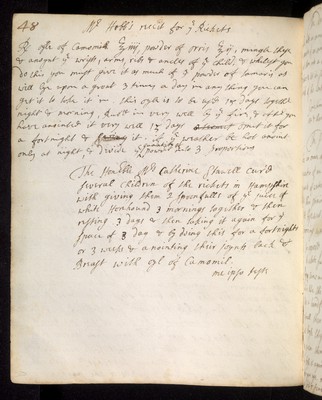 48
Mrs Hobb's receit for ye Rickets
oyle of Camomile powder of orris mingle these
& anoynt ye wrists, arms, ribs & ancles of ye child, & whilest you
do this you must give it as much of ye powder of as
will lye upon a groat 3 times a day in any thing you can
get it to take it in. this oyle is to be used 12 days together
night & morning, Rubb in very well by ye fire, & when you
have anointed it very well 12 days omit it for
a fortnight & it; if ye weather be hot anoint
only at night & divide ye powder into 3 proportions
The Honble Mrs Catherine Stawell cur'd
severall children of the rickets in Hampshire
with giving them 2 spoonfulls of ye juice of
white Horehound 3 mornings together & then
resting 3 days & then taking it again for ye
space of 3 day & by doing this for a fortnight
or 3 weeks & anointing their joynts back &
Breast with oyl of Camomil.
me ipso teste